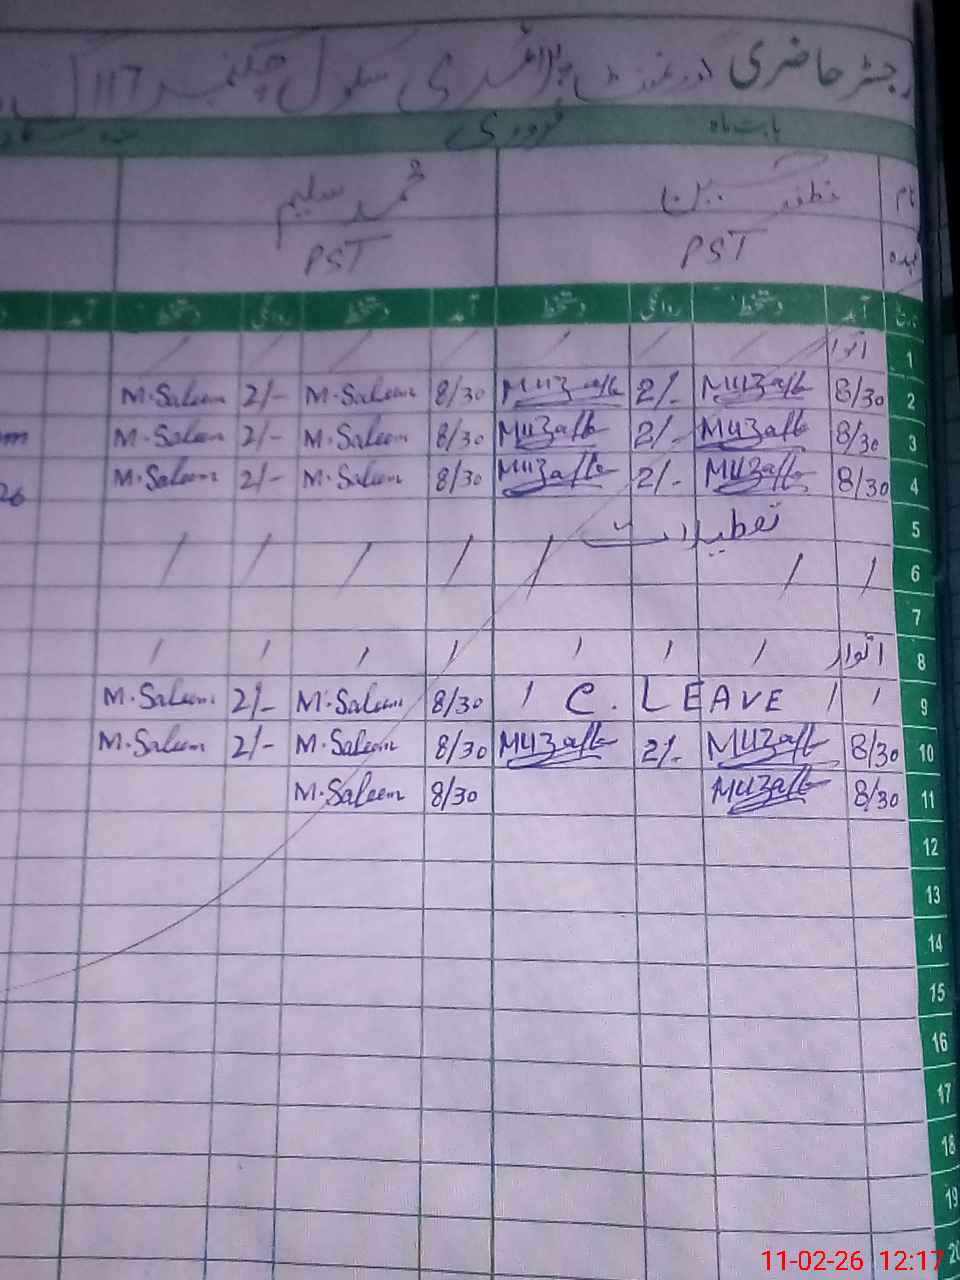 رجسٹر حاضری گورنمنٹ پرائمری سکول چک نمبر 117
بابت ماہ فروری
نام محمد سلیم
عہدہ PST PST
تاریخ آمد دستخط روانگی دستخط آمد دستخط روانگی دستخط آمد
1 اتوار / / / / / / /
2 8/30 Muzaffr 2/- Muzaffr 8/30 M.Saleem 2/- M.Saleem
3 8/30 Muzaffr 2/- Muzaffr 8/30 M.Saleem 2/- M.Saleem
4 8/30 Muzaffr 2/- Muzaffr 8/30 M.Saleem 2/- M.Saleem
26
5 تعطیلات
6 / / / / / / /
7
8 اتوار / / / / / / /
9 / / C. LEAVE / 8/30 M.Saleem 2/- M.Saleem
10 8/30 Muzaffr 2/- Muzaffr 8/30 M.Saleem 2/- M.Saleem
11 8/30 Muzaffr 8/30 M.Saleem
12
13
14
15
16
17
18
19
20
11-02-26 12:17